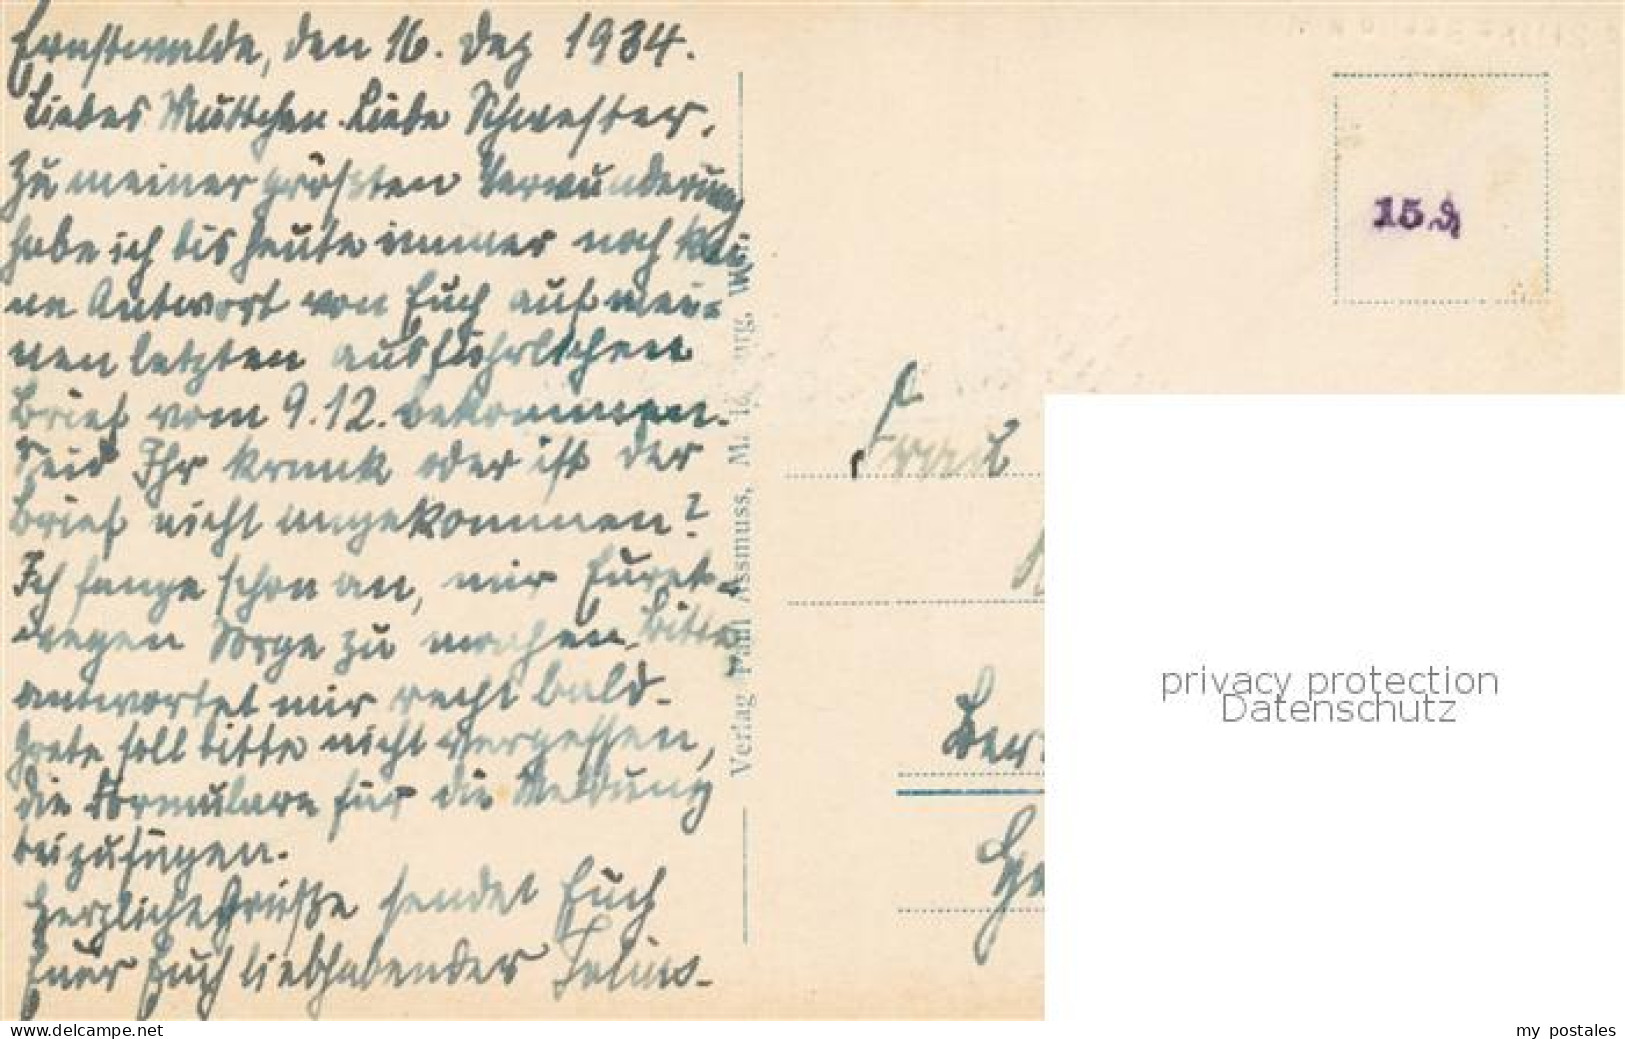 Ernstwalde, den 16. Dez 1934.
Liebes Muttchen. Liebe Schwester.
Zu meiner größten Verwunderung
habe ich bis heute immer noch kei-
ne Antwort von Euch auf mei-
nen letzten ausführlichen
Brief vom 9.12. bekommen.
Seid Ihr krank oder ist der
Brief nicht angekommen?
Ich fange schon an, mir Euret-
wegen Sorge zu machen. Bitte
antwortet mir recht bald.
Grete soll bitte nicht vergessen,
die Formulare für die Meldung
beizufügen.
Herzliche Grüße sendet Euch
Euer Euch liebhabender
Verlag Paul Assmuss, M.
15
Frau
privacy protection
Datenschutz
www.delcampe.net
my_postales